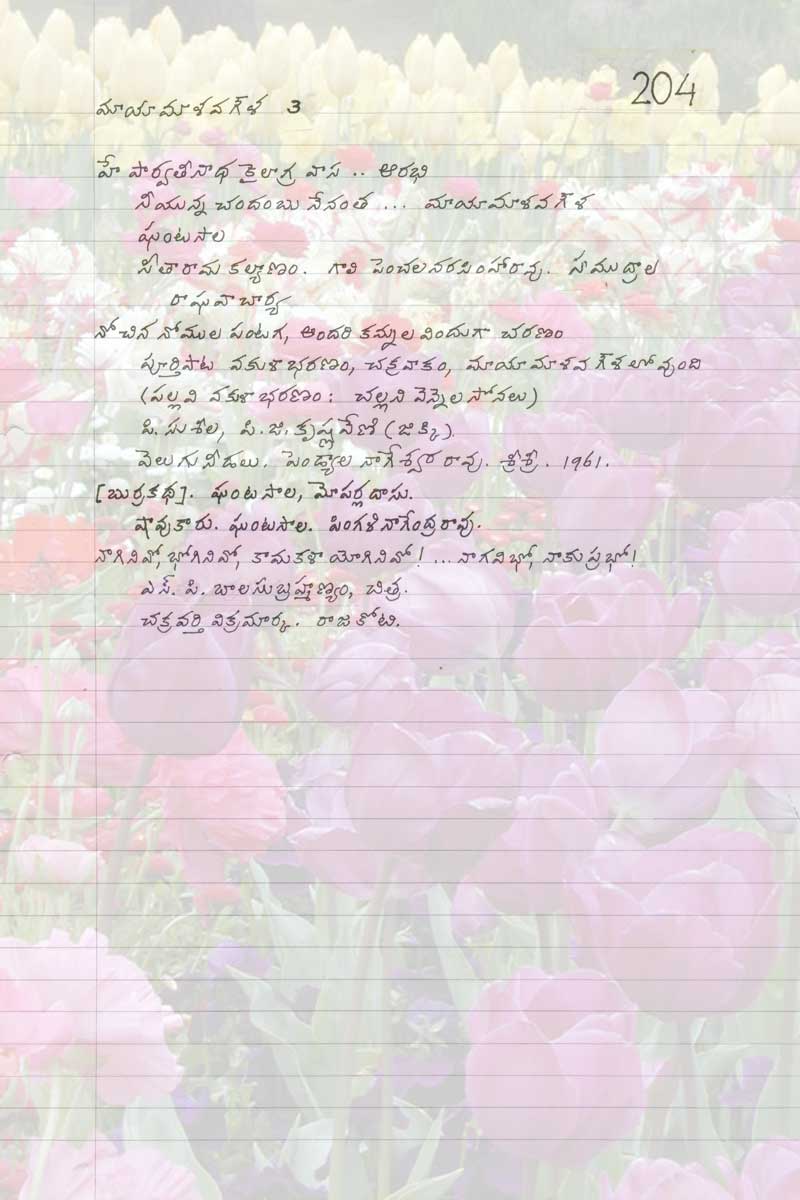 204
మాయామాళవగౌళ 3
హే పార్వతీనాథ కైలాగ్ర వాస .. ఆరభి
నీయున్న చందంబు నేనంత ... మాయామాళవగౌళ
ఘంటసాల
సీతారామ కల్యాణం. గాలి పెంచలనరసింహారావు. సముద్రాల
రాఘవాచార్య
నోచిన నోముల పంటగ, అందరి కన్నుల విందుగా చరణం
పూర్తిపాట వకుళాభరణం, చక్రవాకం, మాయామాళవగౌళలోవుంది
(పల్లవి వకుళాభరణం : చల్లని వెన్నెల సోనలు)
పి. సుశీల, పి.జి. కృష్ణవేణి (జిక్కి).
వెలుగునీడలు. పెండ్యాల నాగేశ్వరరావు. శ్రీశ్రీ. 1961.
[బుర్రకథ]. ఘంటసాల, మోపర్లదాసు.
షావుకారు. ఘంటసాల. పింగళినాగేంద్రరావు.
నాగినివో, భోగినివో, కామకళా యోగినివో! ... నాగవిభో, నాకుప్రభో!
ఎస్. పి. బాలసుబ్రహ్మణ్యం, చిత్ర.
చక్రవర్తి విక్రమార్క. రాజకోటి.